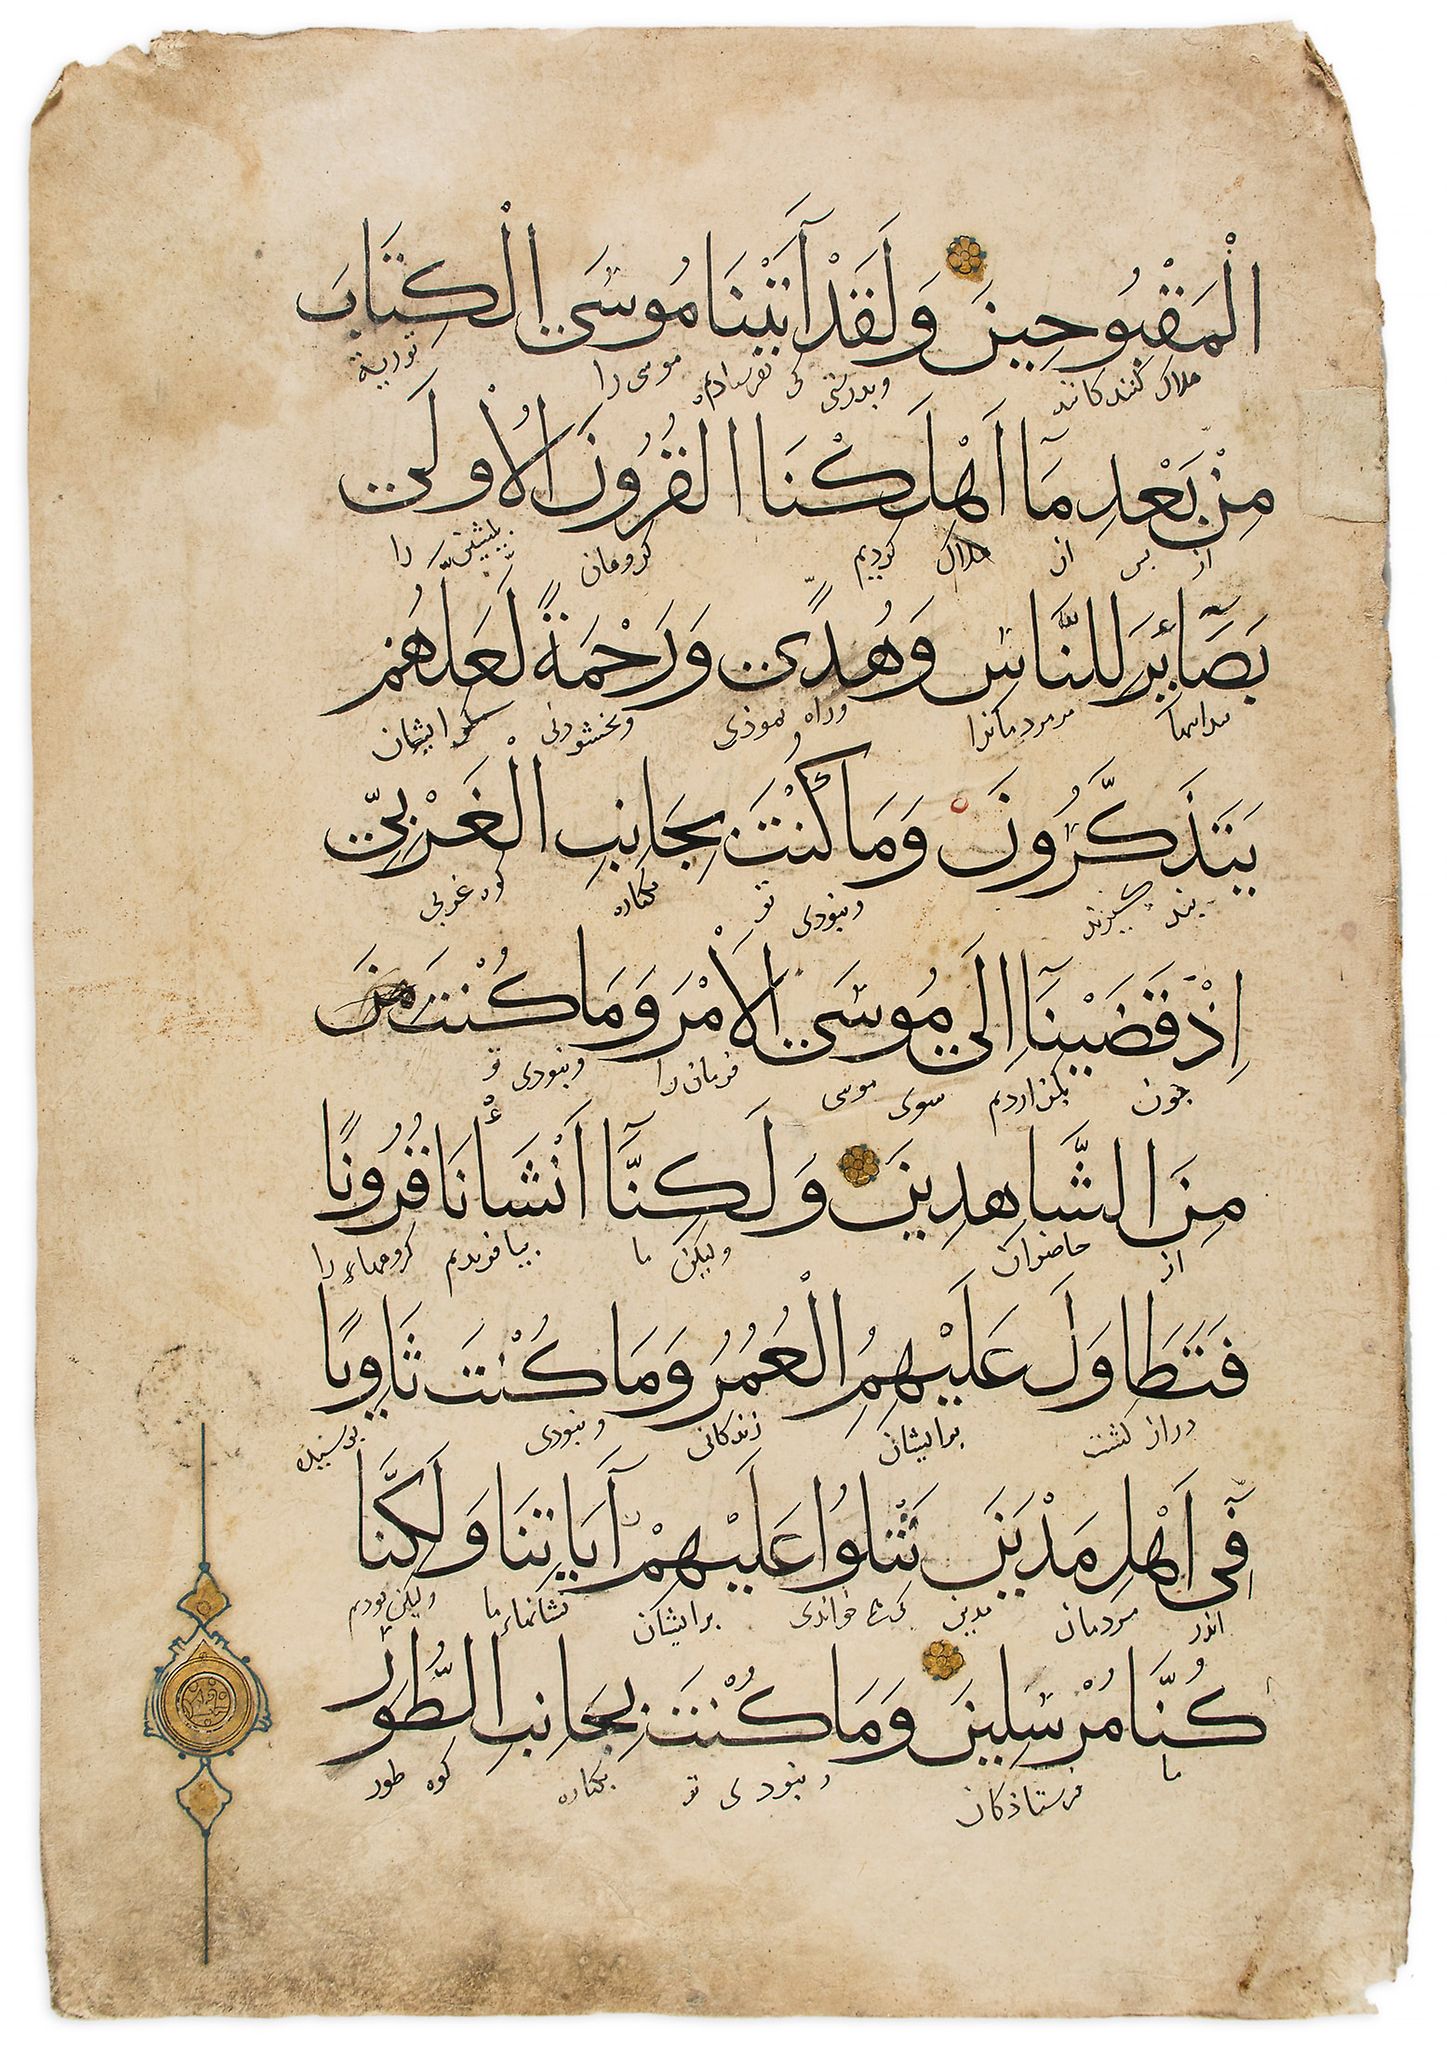 الْمَقْبُوحِينَ وَلَقَدْ آتَيْنَا مُوسَى الْكِتَابَ
هلاک کنندکانند وبدرستی کی بفرستادم موسی را توریة
مِنْ بَعْدِ مَا أَهْلَكْنَا الْقُرُونَ الْأُولَى
از بس از هلاک کردیم کروهان بیشین را
بَصَآئِرَ لِلنَّاسِ وَهُدًى وَرَحْمَةً لَعَلَّهُمْ
مرمردمانرا وراه نموذی وبخشودنی ایشان
يَتَذَكَّرُونَ وَمَا كُنْتَ بِجَانِبِ الْغَرْبِيِّ
بند کیرند ونبودی تو بکناره کوه غربی
إِذْ قَضَيْنَآ إِلَى مُوسَى الْأَمْرَ وَمَا كُنْتَ مِنَ
جون بکزاردیم سوی موسی فرمان را ونبودی تو
مِنَ الشَّاهِدِينَ وَلَكِنَّآ أَنْشَأْنَا قُرُونًا
از حاضران ولیکن ما بیافریدیم کروههاء را
فَتَطَاوَلَ عَلَيْهِمُ الْعُمُرُ وَمَا كُنْتَ ثَاوِيًا
دراز کشت برایشان زندکانی ونبودی
فِي أَهْلِ مَدْيَنَ تَتْلُوا عَلَيْهِمْ آيَاتِنَا وَلَكِنَّا
اندر مردمان مدین خواندی برایشان نشانهاء ما ولیکن بودیم
كُنَّا مُرْسِلِينَ وَمَا كُنْتَ بِجَانِبِ الطُّورِ
ما فرستاذکان ونبودی تو بکناره کوه طور